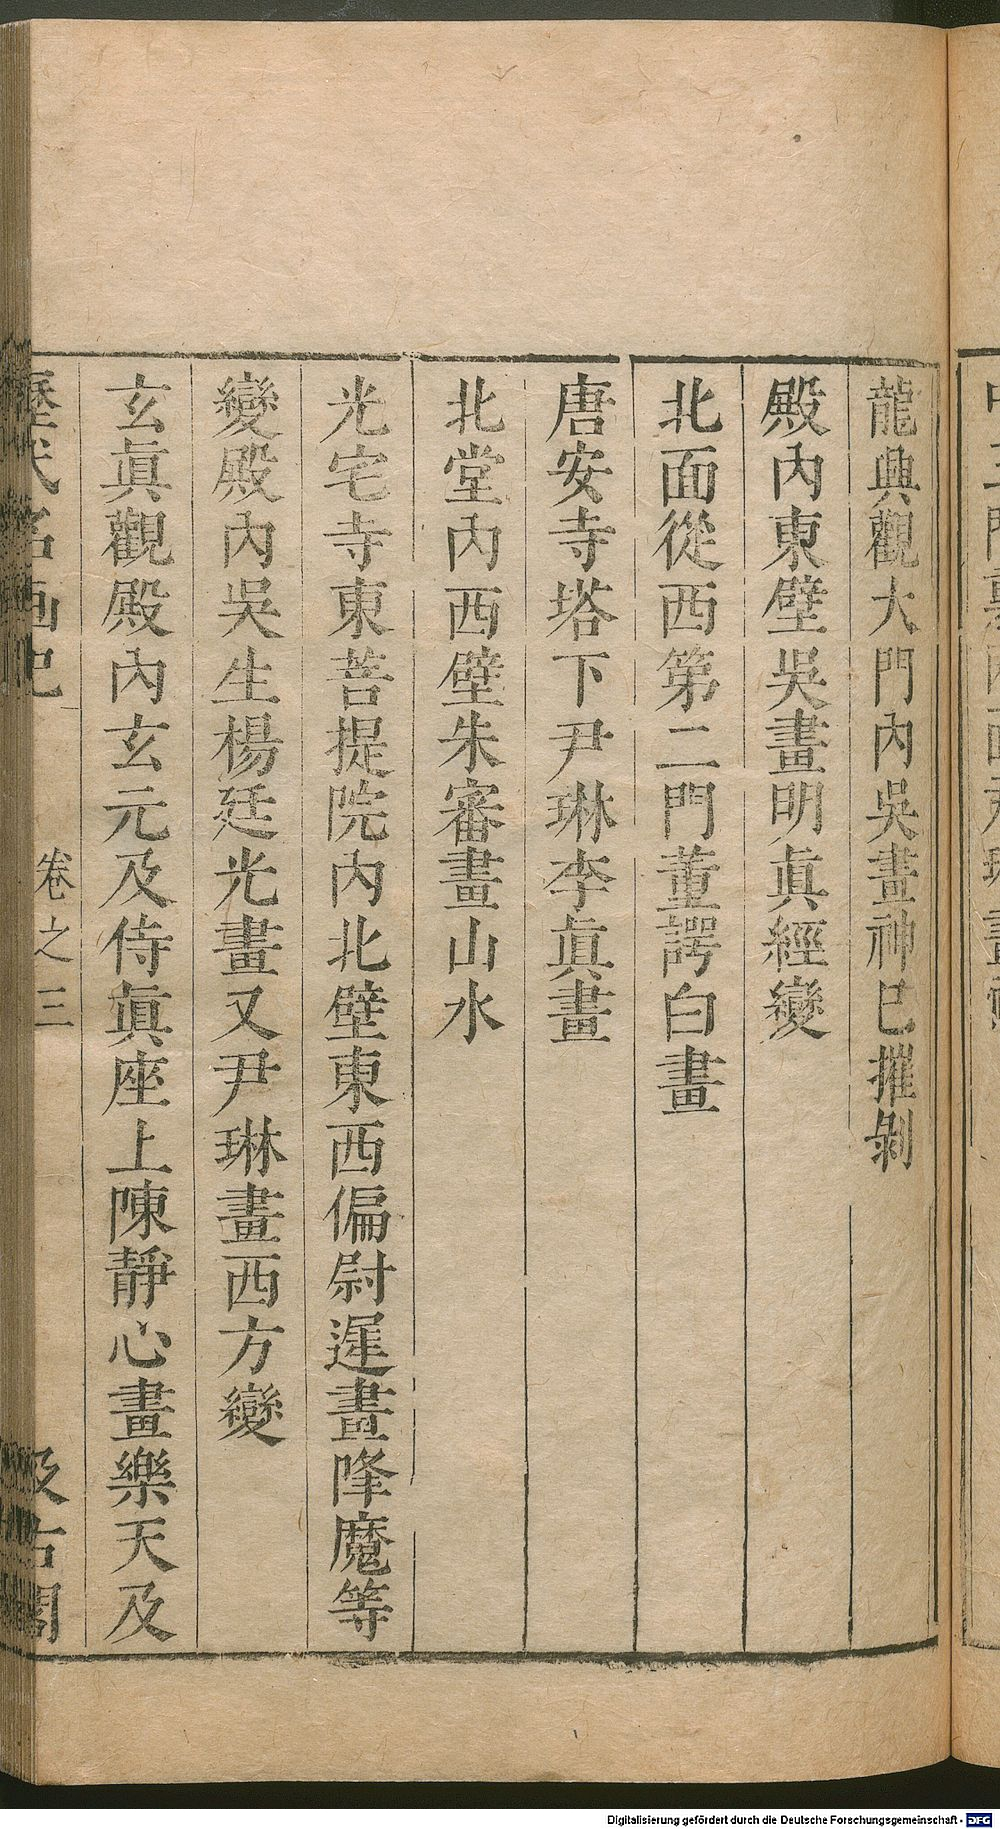 龍興觀大門內吳畫神已摧剝
殿內東壁吳畫明眞經變
北面從西第二門董諤白畫
唐安寺塔下尹琳李眞畫
北堂內西壁朱審畫山水
光宅寺東菩提院內北壁東西偏尉遲畫降魔等
變殿內吳生楊廷光畫又尹琳畫西方變
玄眞觀殿內玄元及侍眞座上陳靜心畫樂天及
歷代名画記
卷之三
汲古閣
Digitalisierung gefördert durch die Deutsche Forschungsgemeinschaft - DFG